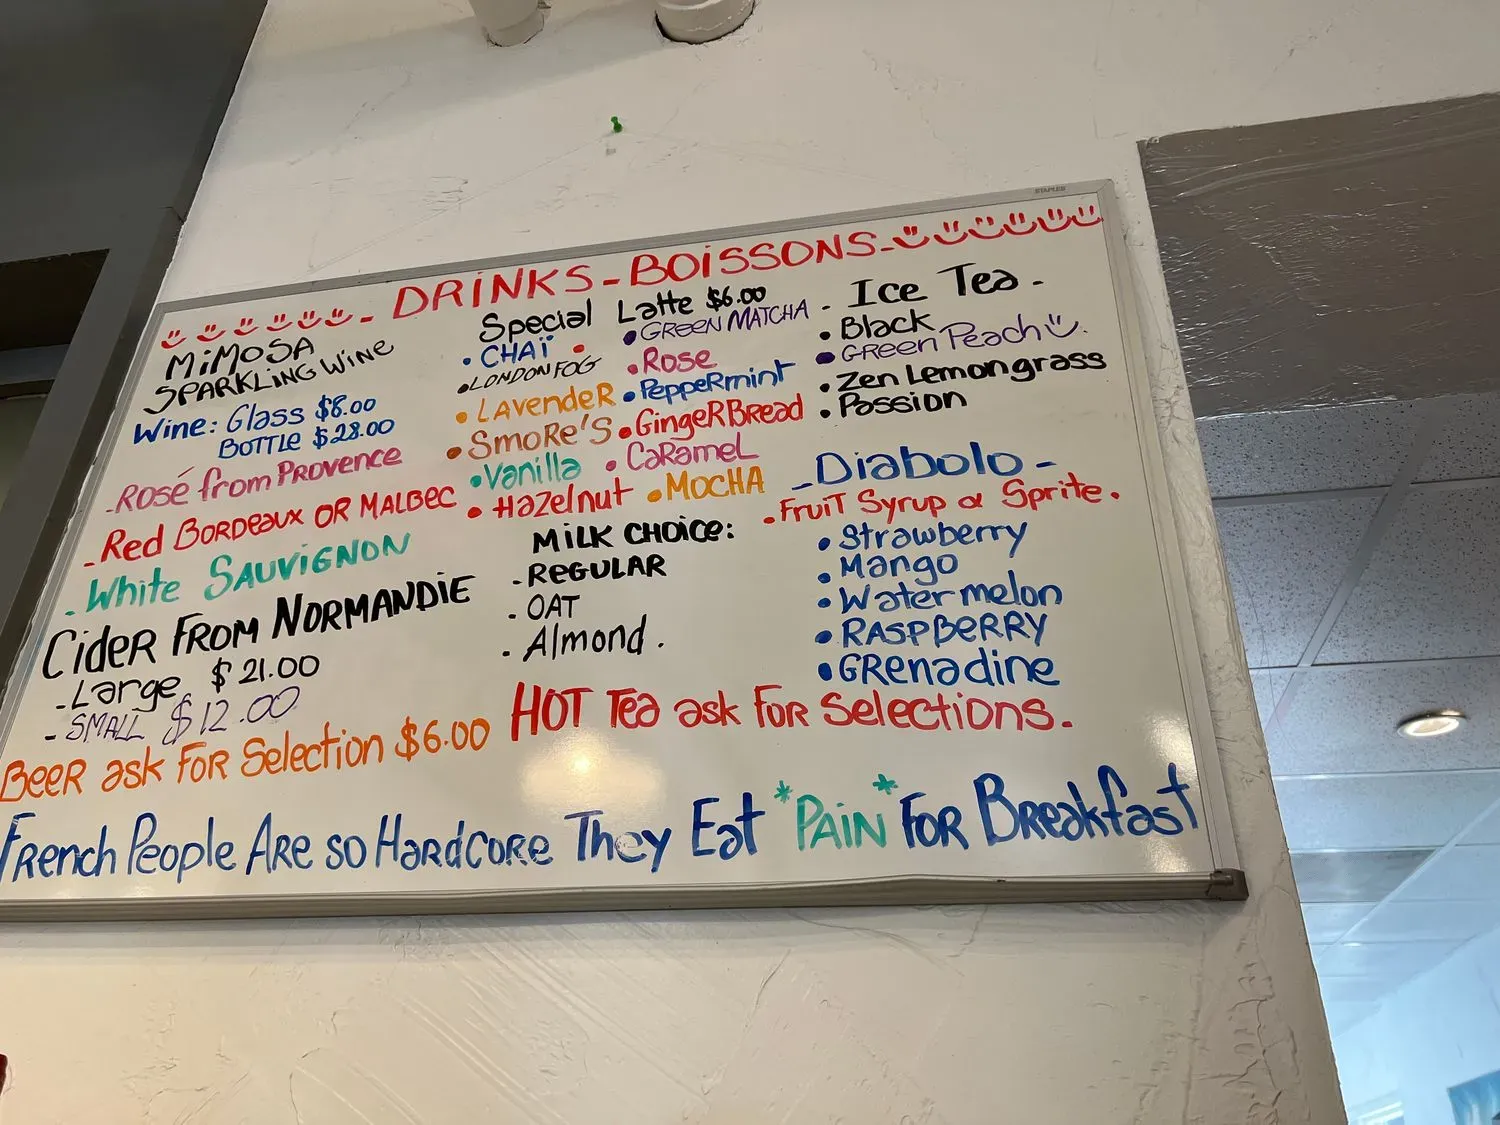 STAPLES
DRINKS - BOISSONS -
MIMOSA
SPARKLING WINE
Wine: Glass $8.00
BOTTLE $28.00
- Rosé from PROVENCE
- Red BORDEAUX OR MALBEC
- White SAUVIGNON
Cider FROM NORMANDIE
- Large $21.00
- SMALL $12.00
BEER ask FOR Selection $6.00
Special Latte $6.00
• CHAÏ
• LONDON FOG
• LAvendeR
• SmoRe'S
• Vanilla
• Hazelnut
• GREEN MATCHA
• Rose
• PeppeRmint
• GingeRBread
• CaRameL
• MOCHA
MILK CHOICE:
- REGULAR
- OAT
- Almond.
- Ice Tea -
• Black
• GReen Peach
• Zen Lemongrass
• Passion
- Diabolo -
• FRuiT Syrup & Sprite.
• Strawberry
• Mango
• Water melon
• RASPBERRY
• GRenadine
HOT Tea ask FOR Selections.
FRench People ARe so HaRdCoRe They Eat *PAIN* FOR BReakfast